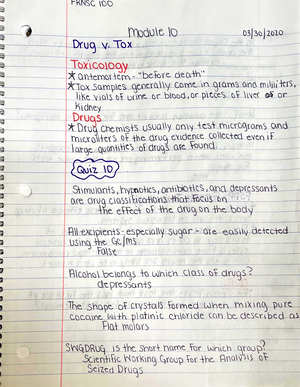 FRNSC 100
Module 10
03/30/2020
Drug v. Tox
Toxicology
* antemortem - "before death"
* Tox samples generally come in grams and mililiters,
like vials of urine or blood, or pieces of liver or
kidney
Drugs
* Drug chemists usually only test micrograms and
microliters of the drug evidence collected even if
large quantities of drugs are found.
Quiz 10
Stimulants, hypnotics, antibiotics, and depressants
are drug classifications that focus on
the effect of the drug on the body
All excipients - especially sugar - are easily detected
using the GC/MS
False
Alcohol belongs to which class of drugs?
depressants
The shape of crystals formed when mixing pure
cocaine with platinic chloride can be described as
Flat molars
SWGDRUG is the short name for which group?
Scientific Working Group for the Analysis of
Seized Drugs